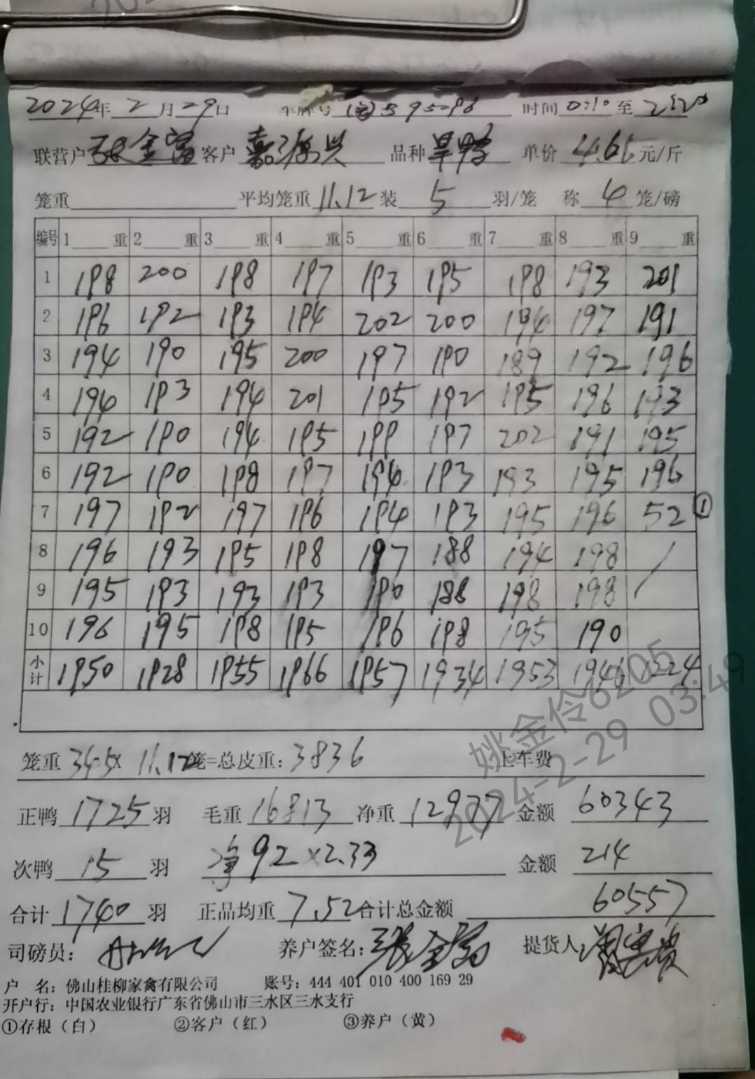 2024年 2月 29日 车牌号 595-96 时间 0:10 至 2:20
联营户 张金富 客户 品种 旱鸭 单价 4.65 元/斤
笼重 平均笼重 11.12 装 5 羽/笼 称 4 笼/磅
编号 1 重 2 重 3 重 4 重 5 重 6 重 7 重 8 重 9 重
1 198 200 198 197 193 195 198 193 201
2 196 192 193 194 202 200 194 197 191
3 194 190 195 200 197 190 189 192 196
4 194 193 194 201 195 192 195 196 193
5 192 190 194 195 199 197 202 191 195
6 192 190 198 197 194 193 193 195 196
7 197 192 197 196 194 193 195 196 52 ①
8 196 193 195 198 197 188 194 198 /
9 195 193 193 193 190 188 198 198
10 196 195 198 195 196 198 195 190
小计 1950 1928 1955 1966 1957 1934 1953 1946 1224
笼重 345 x 11.12 笼=总皮重: 3836 上车费
正鸭 1725 羽 毛重 16813 净重 12977 金额 60343
次鸭 15 羽 净92×2.33 金额 214
合计 1740 羽 正品均重 7.52 合计总金额 60557
司磅员: 养户签名: 张金富 提货人:
户 名: 佛山桂柳家禽有限公司 账号: 444 401 010 400 169 29
开户行: 中国农业银行广东省佛山市三水区三水支行
①存根（白） ②客户（红） ③养户（黄）
姚金伶6205
2024-2-29 03:49